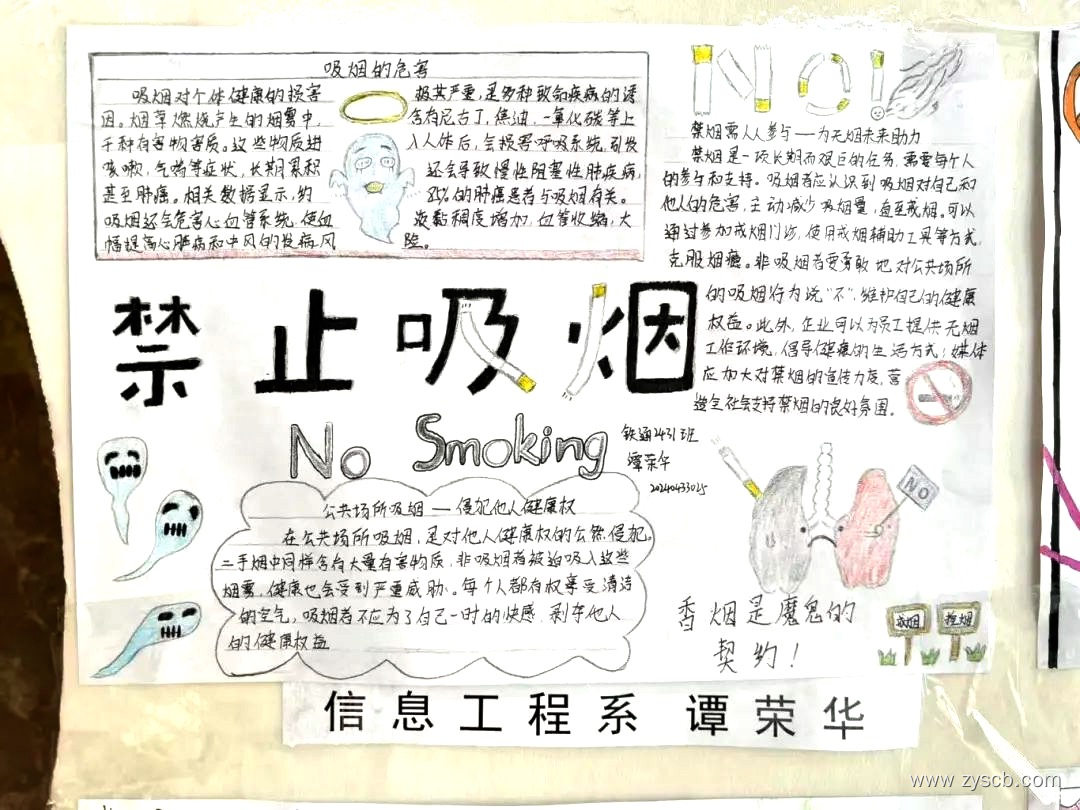 吸烟的危害
吸烟对个体健康的损害
极其严重,是多种致命疾病的诱
因。烟草燃烧产生的烟雾中,
含有尼古丁,焦油,一氧化碳等上
千种有害物害质。这些物质进
入人体后,会损害呼吸系统,引发
咳嗽,气喘等症状,长期累积
还会导致慢性阻塞性肺疾病,
甚至肺癌。相关数据显示,约
85%的肺癌患者与吸烟有关。
吸烟还会危害心血管系统,使血
液黏稠度增加,血管收缩,大
幅提高心脏病和中风的发病风
险。
NO!
禁烟需人人参与——为无烟未来助力
禁烟是一项长期而艰巨的任务,需要每个人
的参与和支持。吸烟者应认识到吸烟对自己和
他人的危害,主动减少吸烟量,直至戒烟。可以
通过参加戒烟门诊,使用戒烟辅助工具等方式,
克服烟瘾。非吸烟者要勇敢地对公共场所
的吸烟行为说“不”,维护自己的健康
权益。此外,企业可以为员工提供无烟
工作环境,倡导健康的生活方式;媒体
应加大对禁烟的宣传力度,营
造全社会支持禁烟的良好氛围。
禁止吸烟
No Smoking
铁通2431班
谭荣华
20240433025
公共场所吸烟——侵犯他人健康权
在公共场所吸烟,是对他人健康权的公然侵犯。
二手烟中同样含有大量有害物质,非吸烟者被迫吸入这些
烟雾,健康也会受到严重威胁。每个人都有权享受清洁
的空气,吸烟者不应为了自己一时的快感,剥夺他人
的健康权益
NO
香烟是魔鬼的
契约!
戒烟
控烟
信息工程系 谭荣华
www.zyscb.com